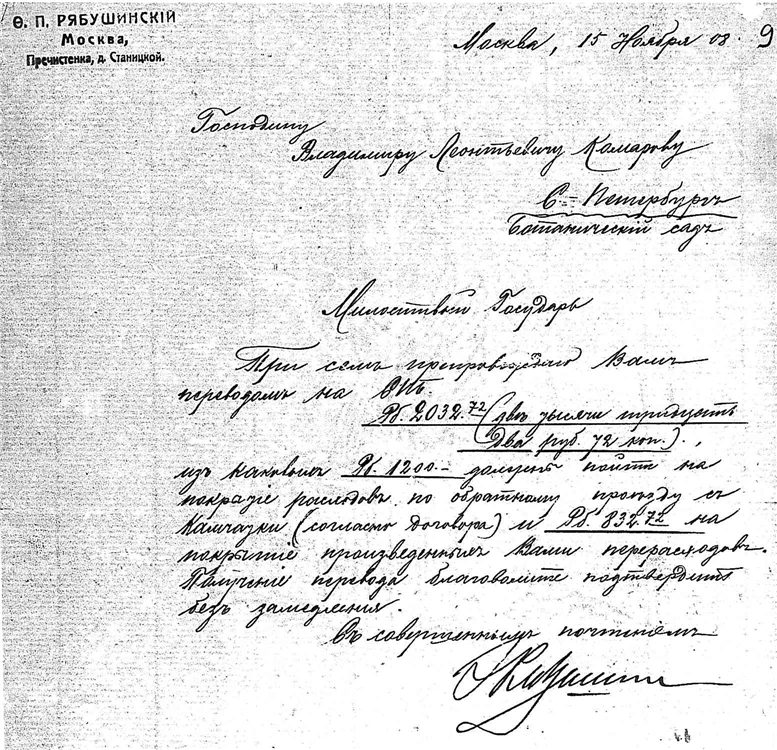 Ѳ. П. РЯБУШИНСКІЙ
Москва,
Пречистенка, д. Станицкой.
Москва, 15 Ноября 08. 9
Господину
Владимиру Леонтьевичу Комарову
С-Петербургъ
Ботаническій садъ
Милостивый Государь
При семъ препровождаю Вамъ
переводомъ на СПБ.
Рб. 2032.72 (двѣ тысячи тридцать
два руб. 72 коп.).,
изъ каковыхъ Рб. 1200.- должны пойти на
покрытіе расходовъ по обратному проѣзду съ
Камчатки (согласно договора) и Рб. 832.72 на
покрытіе произведенныхъ Вами перерасходовъ.
Полученіе перевода благоволите подтвердить
безъ замедленія.
Съ совершеннымъ почтеніемъ